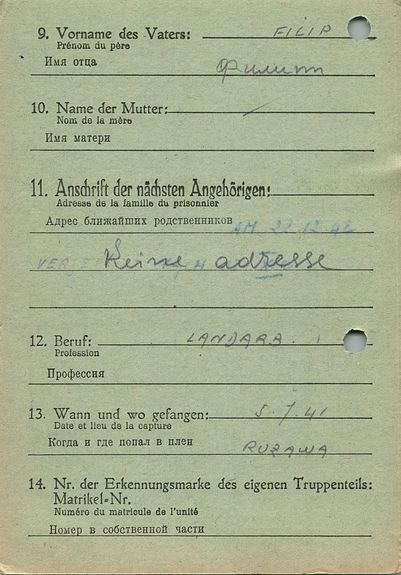 9. Vorname des Vaters: FILIP
Prénom du père
Имя отца Филипп
10. Name der Mutter:
Nom de la mère
Имя матери
11. Anschrift der nächsten Angehörigen:
Adresse de la famille du prisonnier
Адрес ближайших родственников
AM 22.12.42
Keine adresse
12. Beruf: LANDARB.
Profession
Профессия
13. Wann und wo gefangen: 5.7.41
Date et lieu de la capture
Когда и где попал в плен RUZAWA
14. Nr. der Erkennungsmarke des eigenen Truppenteils:
Matrikel-Nr.
Numéro du matricule de l'unité
Номер в собственной части